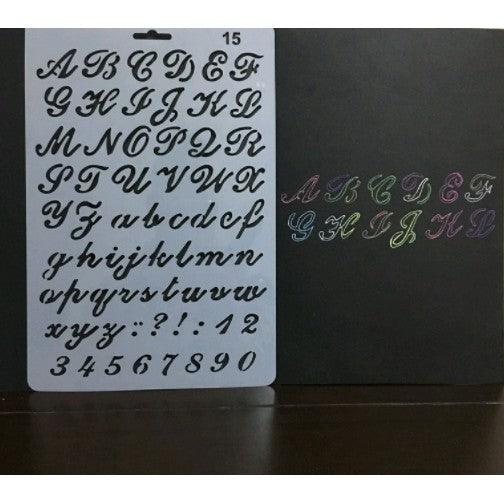 15
A B C D E F
G H I J K L
M N O P Q R
S T U V W X
Y Z a b c d e f
g h i j k l m n
o p q r s t u v w
x y z : ? ! : 1 2
3 4 5 6 7 8 9 0
A B C D E F
G H I J K L